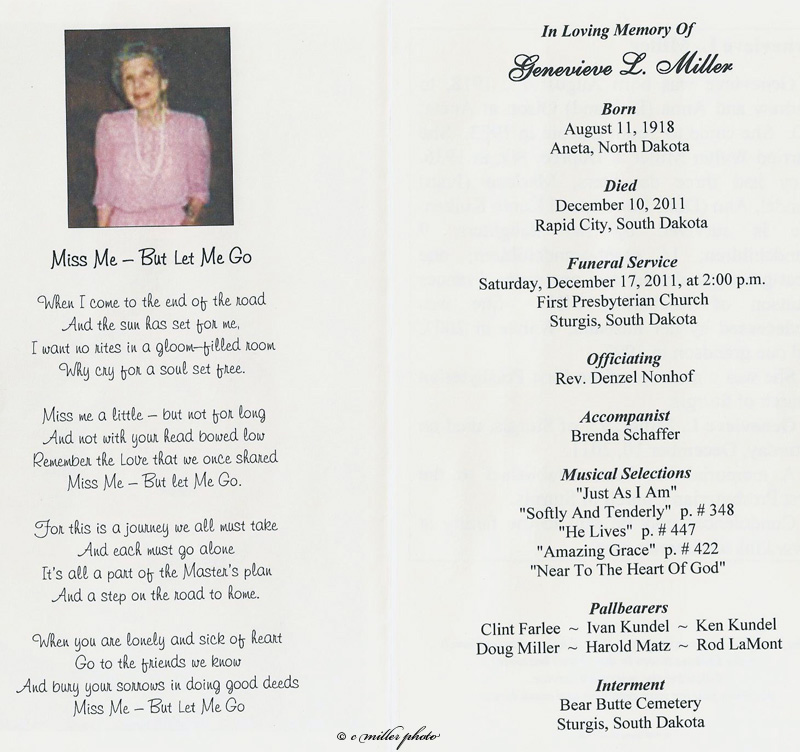 Miss Me – But Let Me Go
When I come to the end of the road
And the sun has set for me,
I want no rites in a gloom-filled room
Why cry for a soul set free.
Miss me a little – but not for long
And not with your head bowed low
Remember the Love that we once shared
Miss Me – But let Me Go.
For this is a journey we all must take
And each must go alone
It's all a part of the Master's plan
And a step on the road to home.
When you are lonely and sick of heart
Go to the friends we know
And bury your sorrows in doing good deeds
Miss Me – But Let Me Go
In Loving Memory Of
Genevieve L. Miller
Born
August 11, 1918
Aneta, North Dakota
Died
December 10, 2011
Rapid City, South Dakota
Funeral Service
Saturday, December 17, 2011, at 2:00 p.m.
First Presbyterian Church
Sturgis, South Dakota
Officiating
Rev. Denzel Nonhof
Accompanist
Brenda Schaffer
Musical Selections
"Just As I Am"
"Softly And Tenderly" p. # 348
"He Lives" p. # 447
"Amazing Grace" p. # 422
"Near To The Heart Of God"
Pallbearers
Clint Farlee ~ Ivan Kundel ~ Ken Kundel
Doug Miller ~ Harold Matz ~ Rod LaMont
Interment
Bear Butte Cemetery
Sturgis, South Dakota
© c miller photo